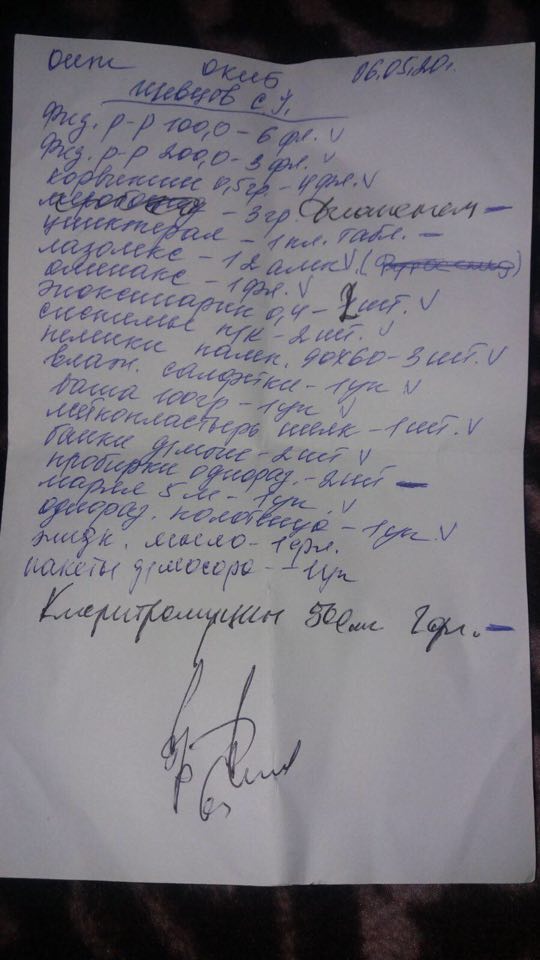 оит окиб 06.05.20г.
Шевцов С.У.
Физ. р-р 100,0 - 6 фл. V
Физ. р-р 200,0 - 3 фл. V
корвинции 0,5гр - 4 фл. V
- 3 гр. –
цинктерал - 1 пл. табл. –
лазолекс - 12 амп V (
оменакс - 1 фл. V
эноксипарин 0,4 - 7 шт. V
системы п/к - 2 шт. V
пеленки памп. 90х60 - 3 шт. V
влаж. салфетки - 1 уп V
вата 100гр - 1 уп V
лейкопластырь шелк - 1 шт. V
банки д/мочи - 2 шт V
пробирки однораз. - 2 шт –
марля 5м - 1 уп. V
однораз. полотенца - 1 уп. V
жидк. мыло - 1 фл.
пакеты д/мусора - 1 уп
Кларитромицин 500мг 2 фл. –